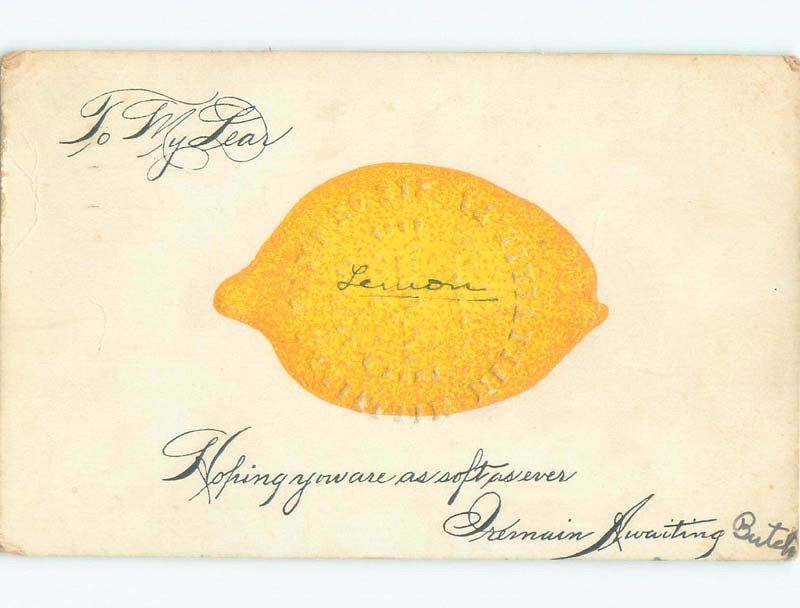 To My Dear
Lemon
Hoping you are as soft as ever
I remain Awaiting Butch